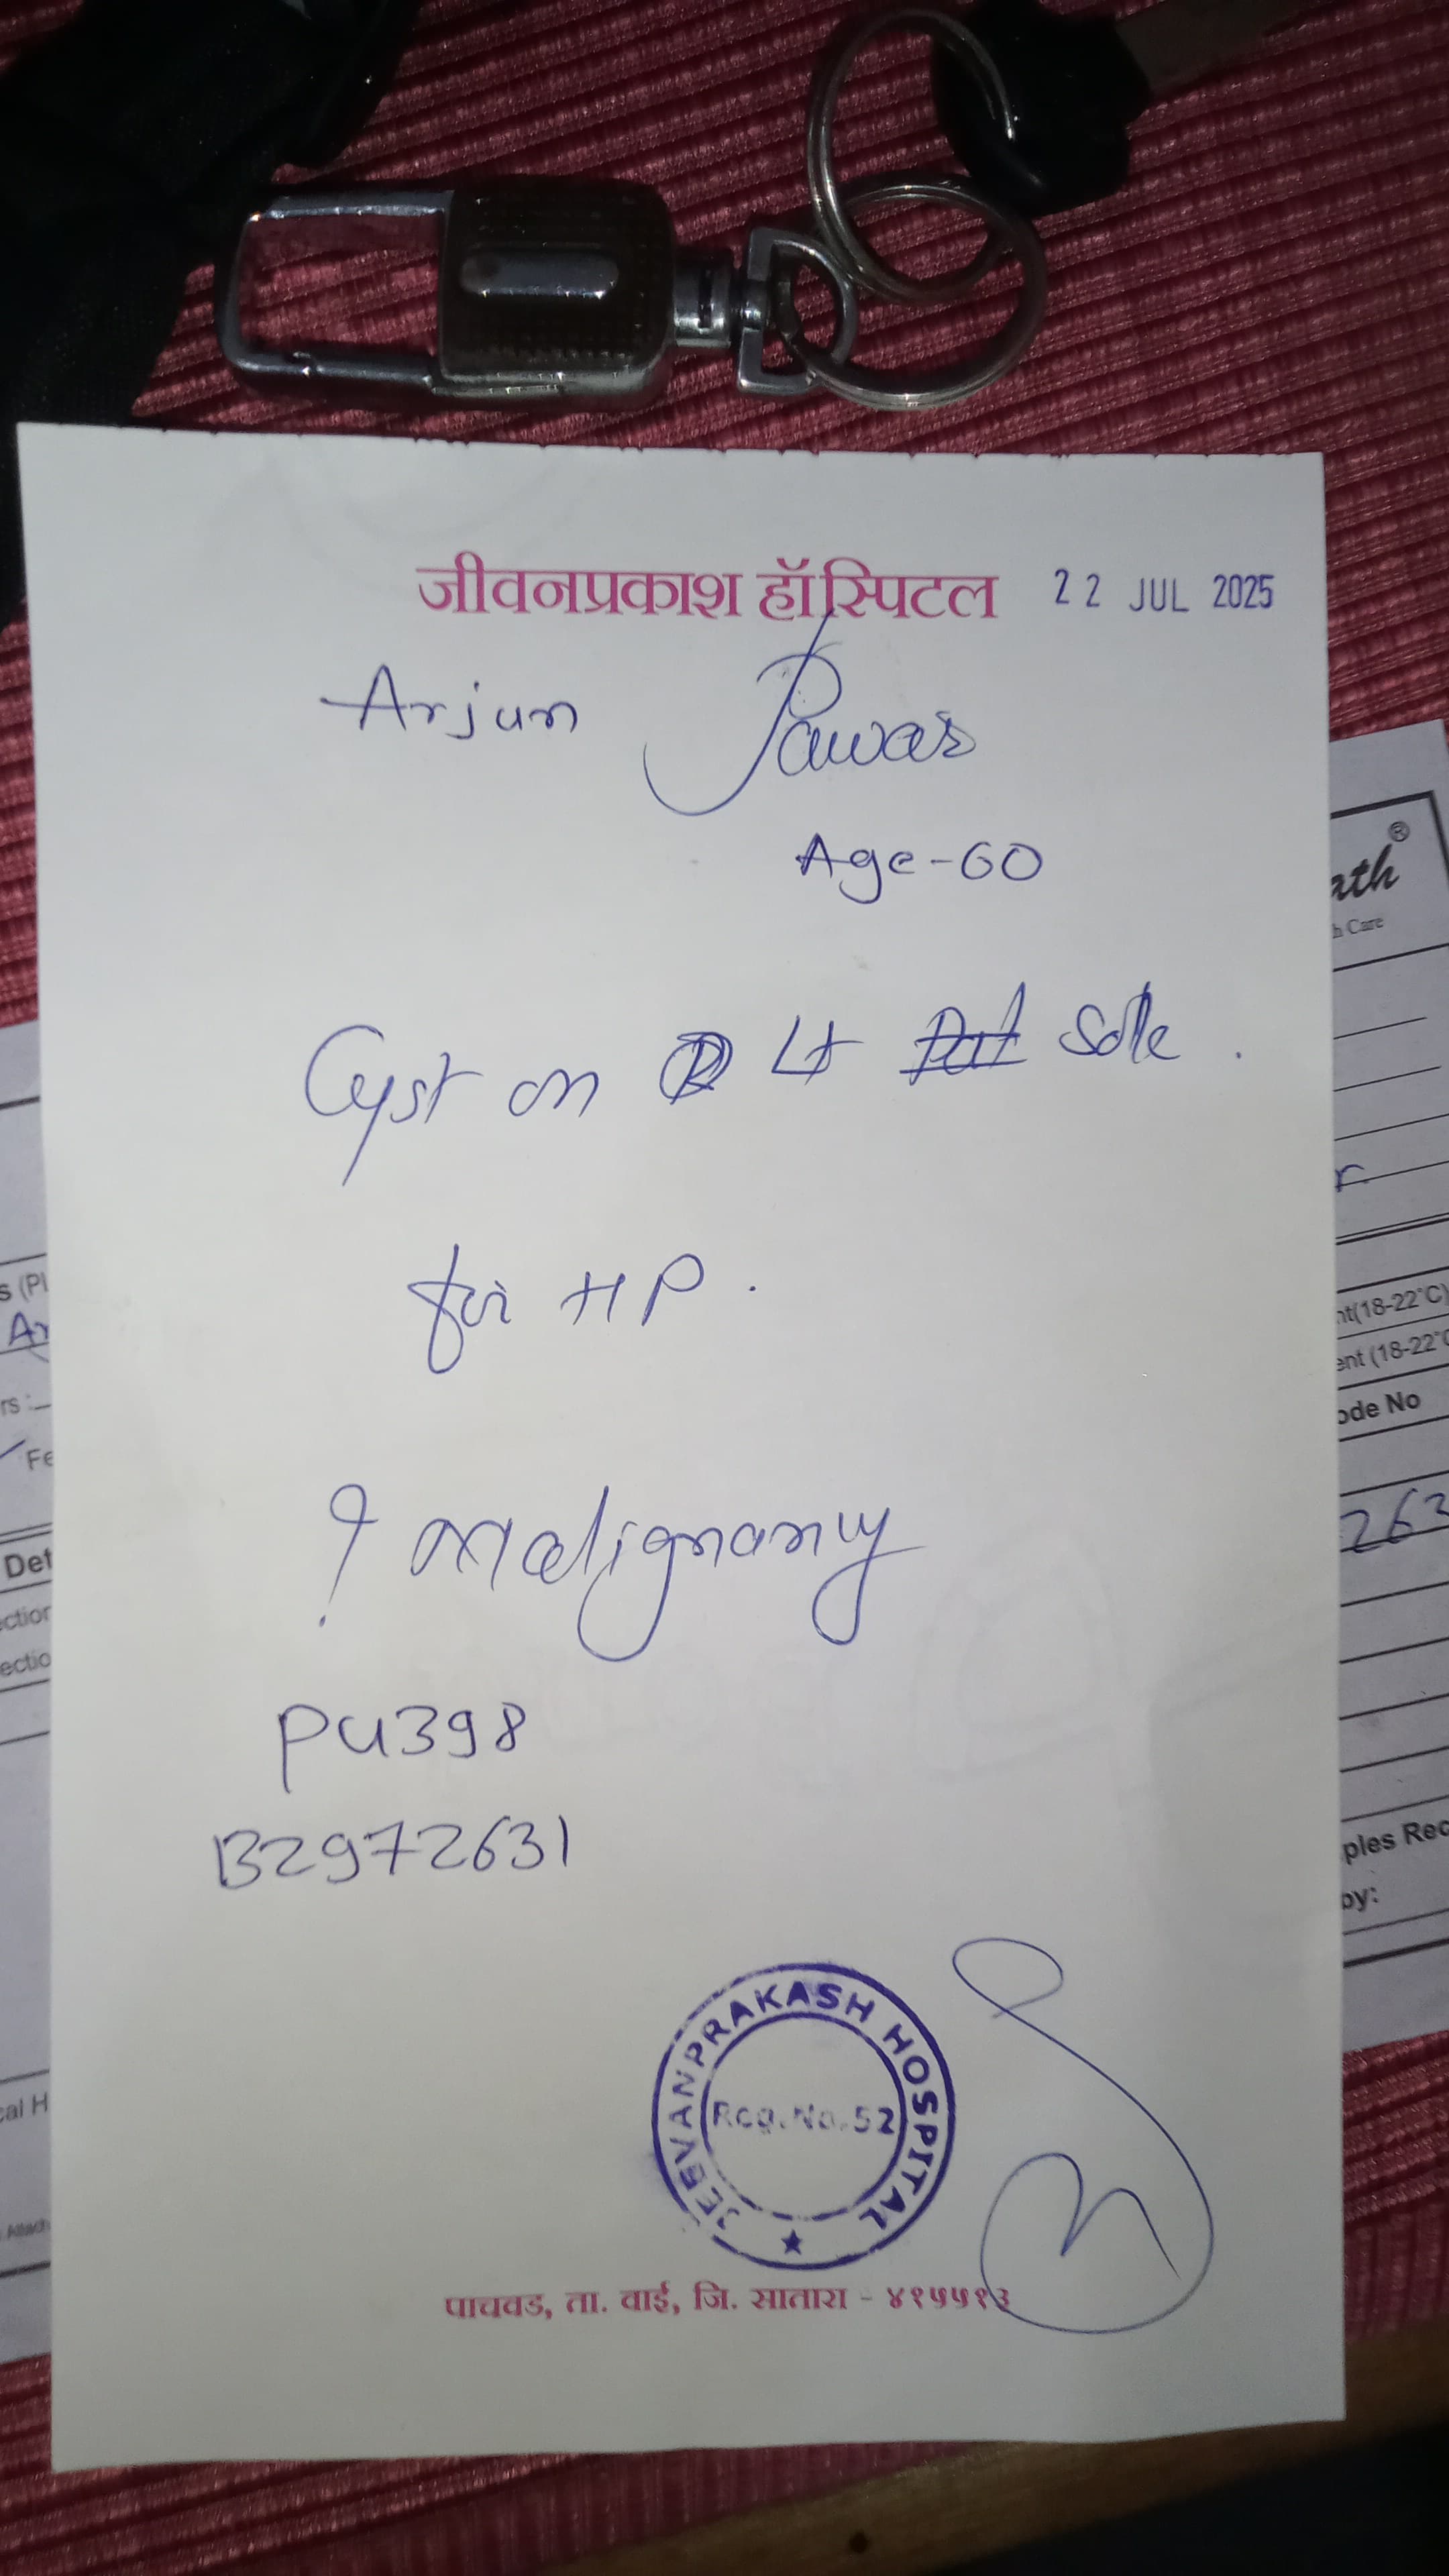 जीवनप्रकाश हॉस्पिटल 22 JUL 2025
Arjun Pawar
Age-60
Cyst on Lt Sole.
for HP.
? malignancy
PU398
B2972631
JEEVANPRAKASH HOSPITAL
Reg. No. 52
पाचवड, ता. वाई, जि. सातारा - ४१५५१३
ath®
h Care
r.
nt(18-22°C)
ent (18-22°C
ode No
263
ples Rec
by:
s (Pl
Ar
rs :
Fe
Det
ection
ectio
cal H